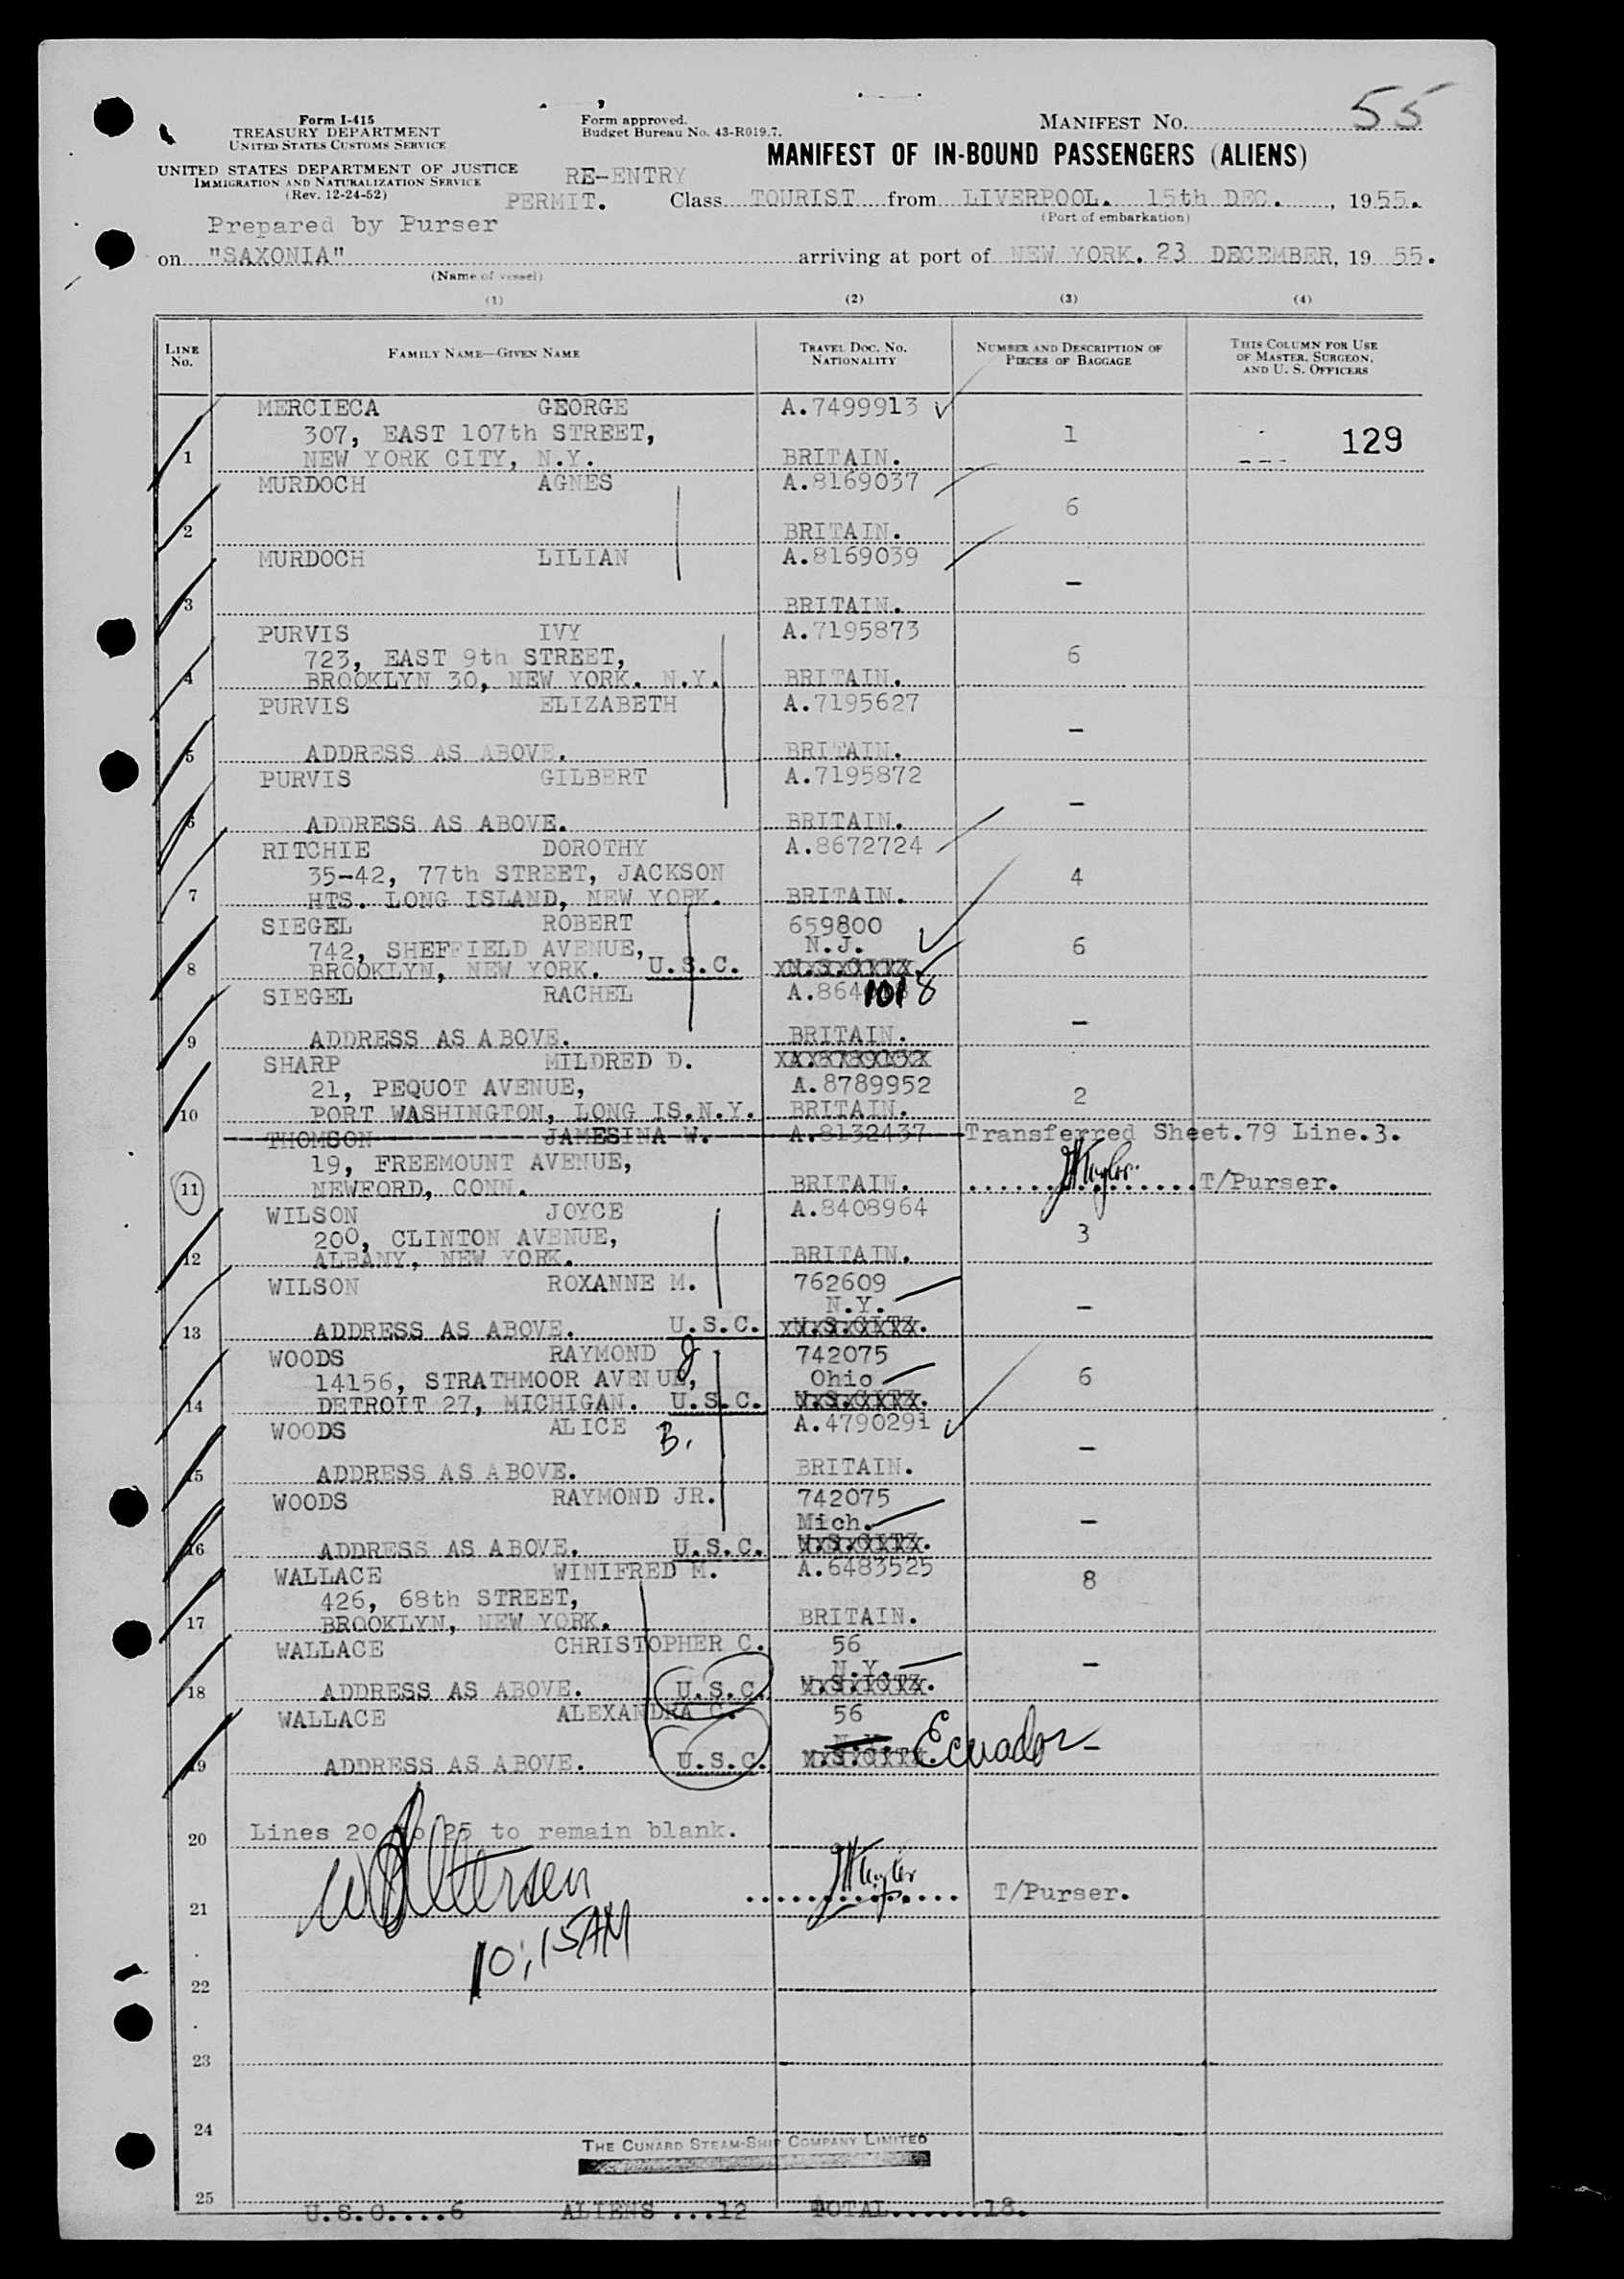 55
Form I-415
TREASURY DEPARTMENT
UNITED STATES CUSTOMS SERVICE
UNITED STATES DEPARTMENT OF JUSTICE
IMMIGRATION AND NATURALIZATION SERVICE
(Rev. 12-24-52)
Form approved.
Budget Bureau No. 43-R019.7.
MANIFEST No.
MANIFEST OF IN-BOUND PASSENGERS (ALIENS)
RE-ENTRY
PERMIT. Class TOURIST from LIVERPOOL. 15th DEC. , 1955.
(Port of embarkation)
Prepared by Purser
on "SAXONIA" arriving at port of NEW YORK. 23 DECEMBER, 19 55.
(Name of vessel)
(1) (2) (3) (4)
LINE No. FAMILY NAME—GIVEN NAME TRAVEL DOC. NO. NATIONALITY NUMBER AND DESCRIPTION OF PIECES OF BAGGAGE THIS COLUMN FOR USE OF MASTER, SURGEON, AND U. S. OFFICERS
MERCIECA GEORGE A.7499913
307, EAST 107th STREET, 1 129
1 NEW YORK CITY, N.Y. BRITAIN.
MURDOCH AGNES A.8169037
6
2 BRITAIN.
MURDOCH LILIAN A.8169039
–
3 BRITAIN.
PURVIS IVY A.7195873
723, EAST 9th STREET, 6
4 BROOKLYN 30, NEW YORK. N.Y. BRITAIN.
PURVIS ELIZABETH A.7195627
–
5 ADDRESS AS ABOVE. BRITAIN.
PURVIS GILBERT A.7195872
–
6 ADDRESS AS ABOVE. BRITAIN.
RITCHIE DOROTHY A.8672724
35-42, 77th STREET, JACKSON 4
7 HTS. LONG ISLAND, NEW YORK. BRITAIN.
SIEGEL ROBERT 659800
742, SHEFFIELD AVENUE, N.J. 6
8 BROOKLYN, NEW YORK. U.S.C. U.S.CITZ.
SIEGEL RACHEL A.8641018
–
9 ADDRESS AS ABOVE. BRITAIN.
SHARP MILDRED D.
21, PEQUOT AVENUE, A.8789952 2
10 PORT WASHINGTON, LONG IS.N.Y. BRITAIN.
THOMSON JAMESINA W. A.8132437 Transferred Sheet.79 Line.3.
19, FREEMOUNT AVENUE,
11 NEWFORD, CONN. BRITAIN. T/Purser.
WILSON JOYCE A.8408964
200, CLINTON AVENUE, 3
12 ALBANY, NEW YORK. BRITAIN.
WILSON ROXANNE M. 762609
N.Y. –
13 ADDRESS AS ABOVE. U.S.C. U.S.CITZ.
WOODS RAYMOND J 742075
14156, STRATHMOOR AVENUE, Ohio 6
14 DETROIT 27, MICHIGAN. U.S.C. U.S.CITZ.
WOODS ALICE B. A.4790291
–
15 ADDRESS AS ABOVE. BRITAIN.
WOODS RAYMOND JR. 742075
Mich. –
16 ADDRESS AS ABOVE. U.S.C. U.S.CITZ.
WALLACE WINIFRED M. A.6483525
426, 68th STREET, 8
17 BROOKLYN, NEW YORK. BRITAIN.
WALLACE CHRISTOPHER C. 56
N.Y. –
18 ADDRESS AS ABOVE. U.S.C. U.S.CITZ.
WALLACE ALEXANDRA C. 56
N.Y. Ecuador –
19 ADDRESS AS ABOVE. U.S.C. U.S.CITZ.
20 Lines 20 to 25 to remain blank.
21 T/Purser.
10:15AM
22
23
24
THE CUNARD STEAM-SHIP COMPANY LIMITED
25
U.S.C....6 ALIENS ...12 TOTAL......18.